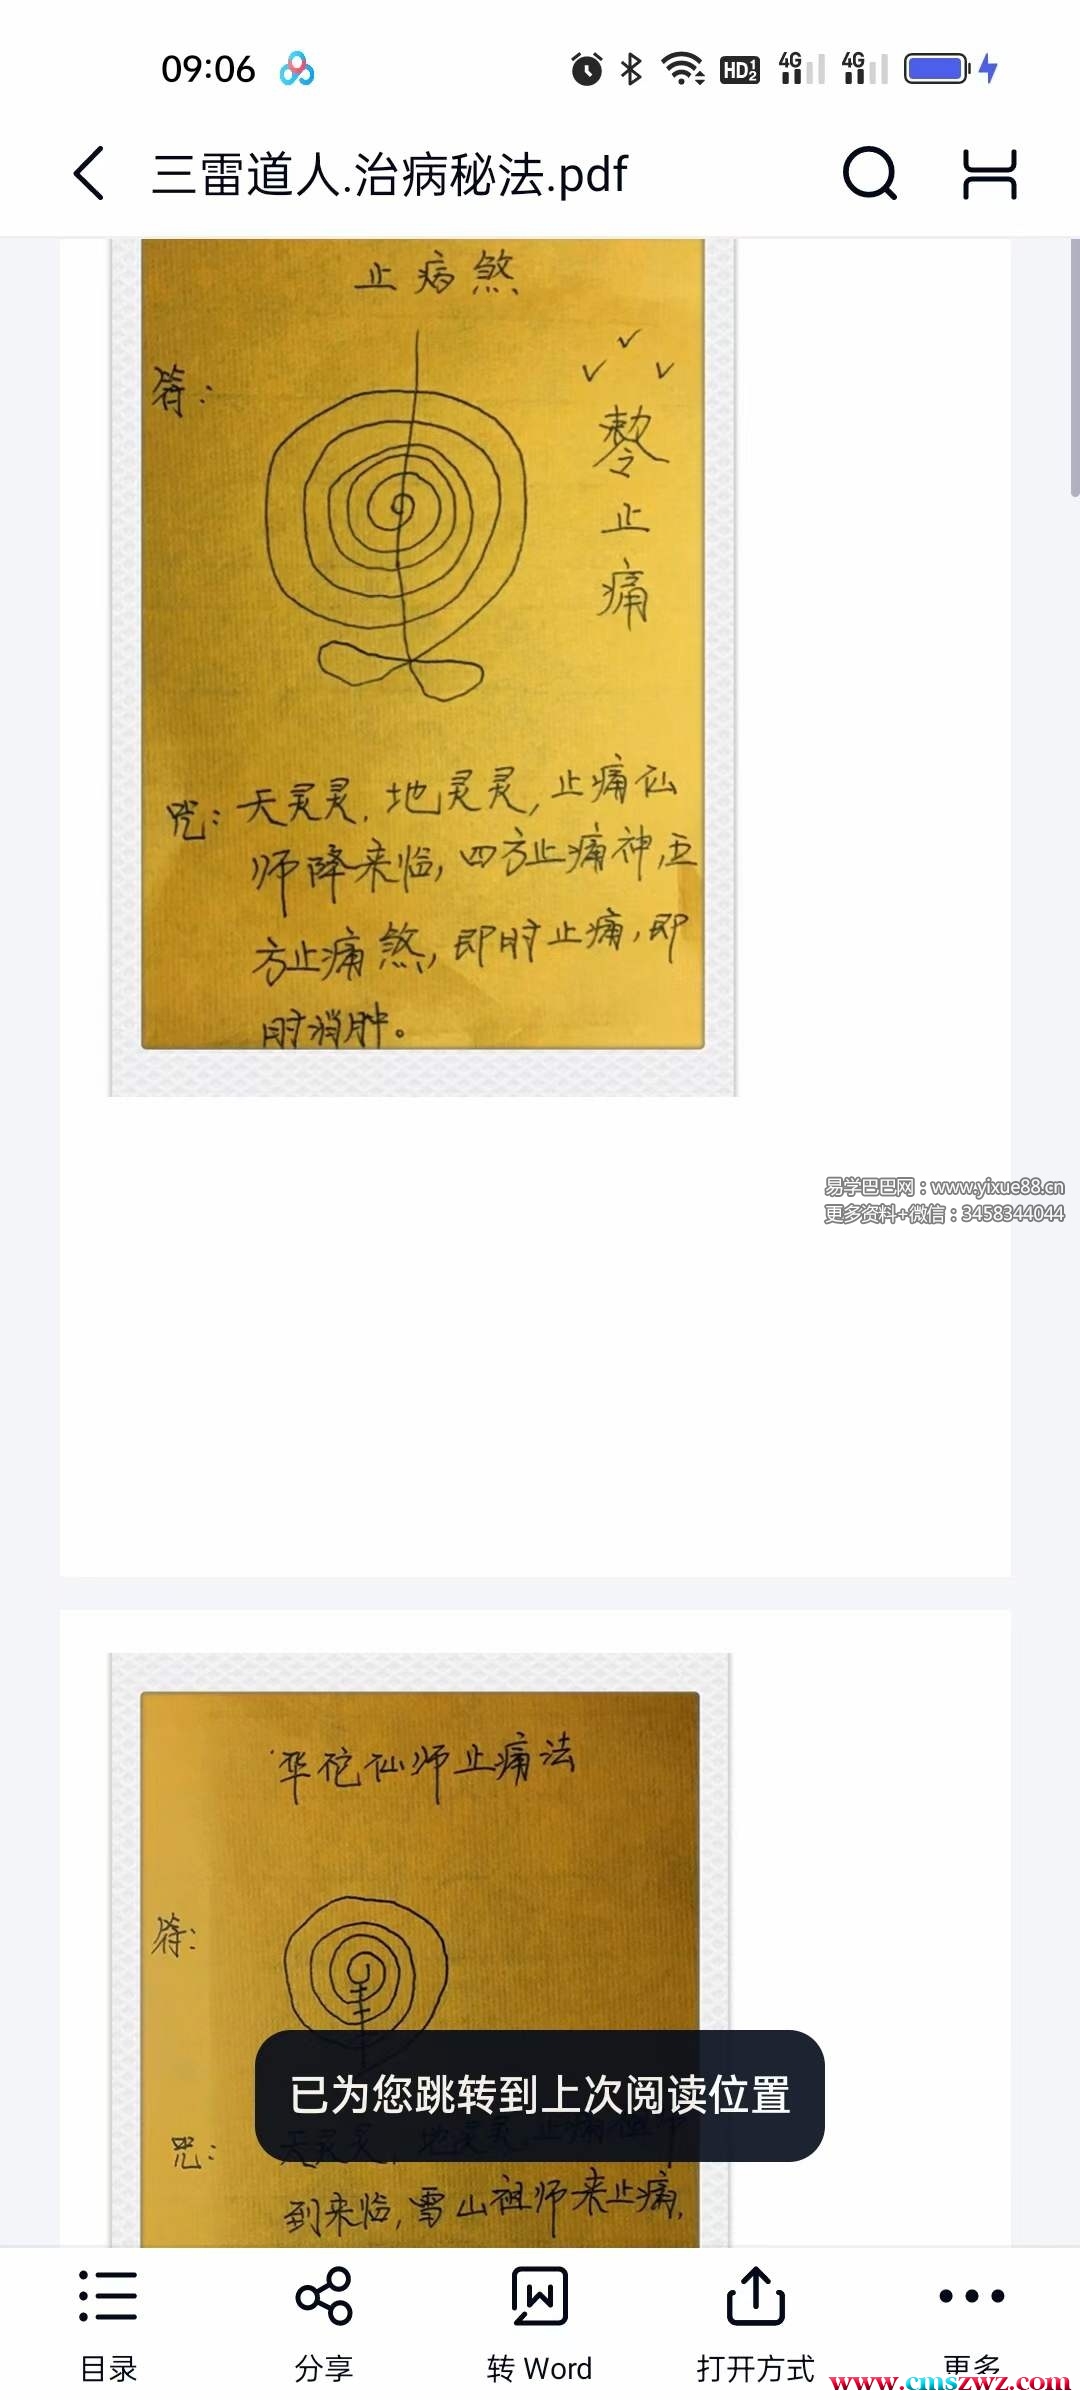 09:06
HD 1 2 4G 4G
三雷道人.治病秘法.pdf
止病煞
符：
敕令
止
痛
咒：天灵灵，地灵灵，止痛仙
师降来临，四方止痛神，五
方止痛煞，即时止痛，即
时消肿。
易学巴巴网：www.yixue88.cn
更多资料+微信：3458344044
华佗仙师止痛法
符：
已为您跳转到上次阅读位置
咒：天灵灵，地灵灵，止痛
到来临，雪山祖师来止痛，
目录 分享 转 Word 打开方式 更多
www.cmszwz.com